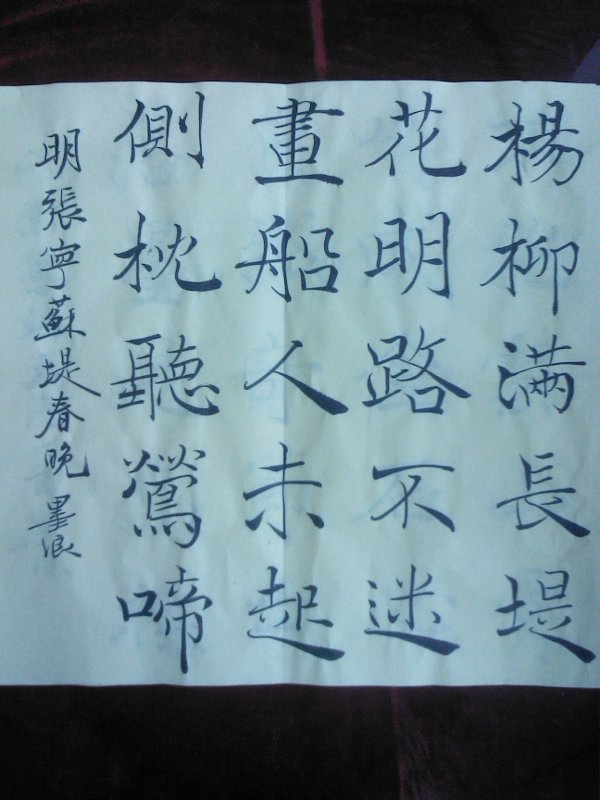 楊柳滿長堤
花明路不迷
畫船人未起
側枕聽鶯啼
明張寧蘇堤春晚 墨浪